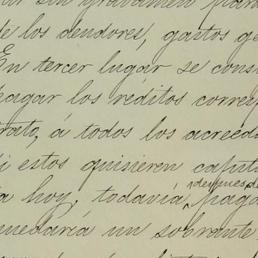 sin gravamen para
de los deudores, gastos ge
En tercer lugar se cons
pagar los reditos corres
trato, á todos los acreed
i estos quisieren capit
ia hoy, todavia, despues d
paga
quedaria un sobrante